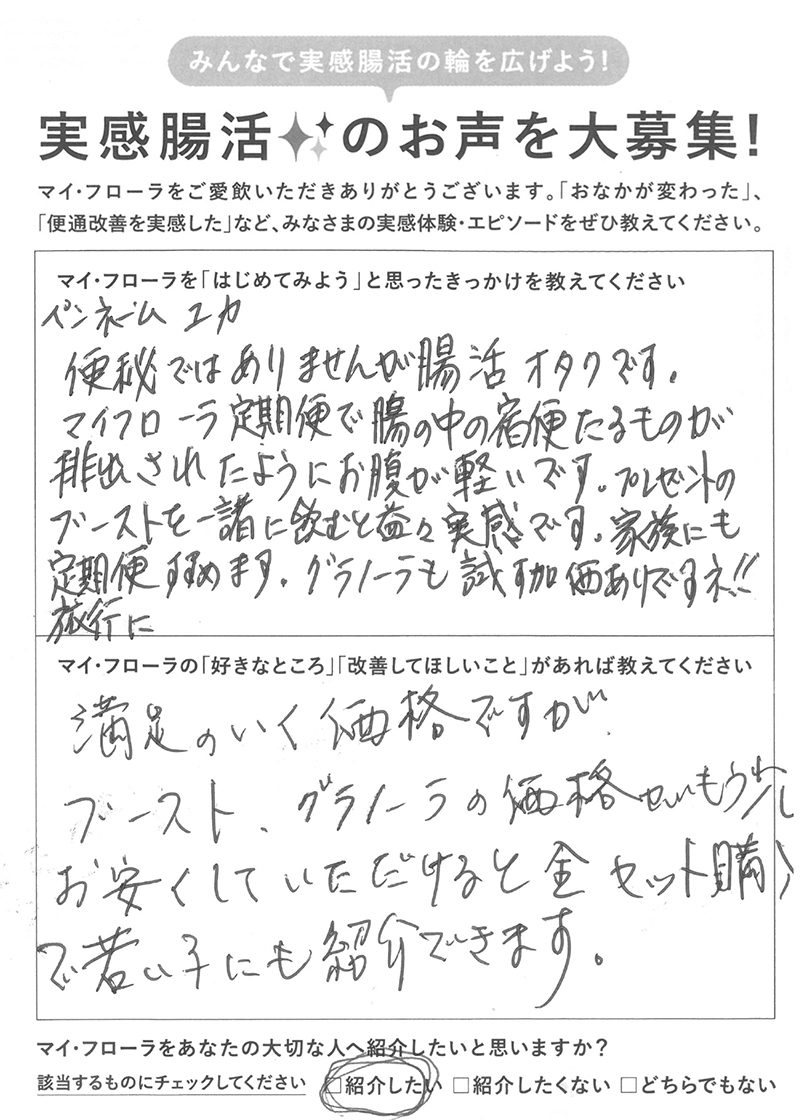 みんなで実感腸活の輪を広げよう!
実感腸活のお声を大募集!
マイ・フローラをご愛飲いただきありがとうございます。「おなかが変わった」、
「便通改善を実感した」など、みなさまの実感体験・エピソードをぜひ教えてください。
マイ・フローラを「はじめてみよう」と思ったきっかけを教えてください
ペンネーム ユカ
便秘ではありませんが腸活オタクです。
マイフローラ定期便で腸の中の宿便たるものが
排出されたようにお腹が軽いです。プレゼントの
ブーストを一諸に飲むと益々実感です。家族にも
定期便すすめます。グラノーラも試す価値ありですネ!!
旅行に
マイ・フローラの「好きなところ」「改善してほしいこと」があれば教えてください
満足のいく価格ですが
ブースト、グラノーラの価格がもう少し
お安くしていただけると全セット購入
で若い子にも紹介できます。
マイ・フローラをあなたの大切な人へ紹介したいと思いますか?
該当するものにチェックしてください □紹介したい □紹介したくない □どちらでもない